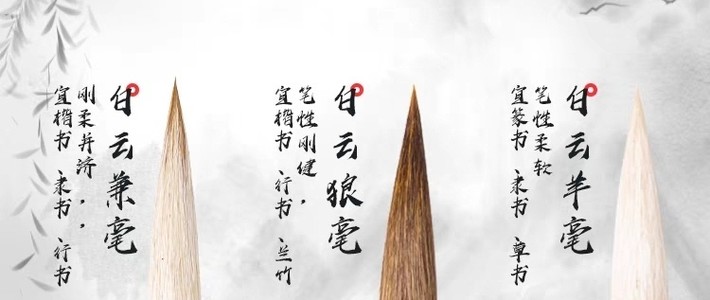 白云兼毫
刚柔并济，
宜楷书、隶书、行书
白云狼毫
笔性刚健，
宜楷书、行书、兰竹
白云羊毫
笔性柔软
宜篆书、隶书、草书